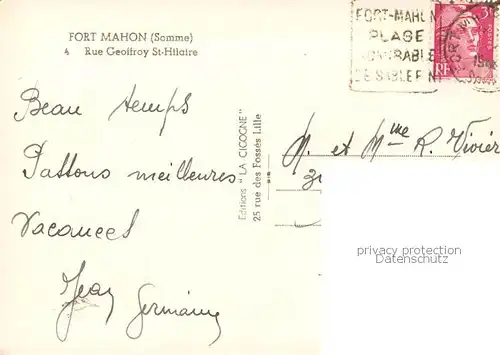 FORT MAHON (Somme)
4 Rue Geoffroy St-Hilaire
FORT-MAHON
PLAGE
DE SABLE FIN
RF
Beau temps
Pattons meilleures
Vacances
Jean Germaine
Editions "LA CICOGNE"
25 rue des Fossés Lille
M. et Mme R. Vivier
privacy protection
Datenschutz